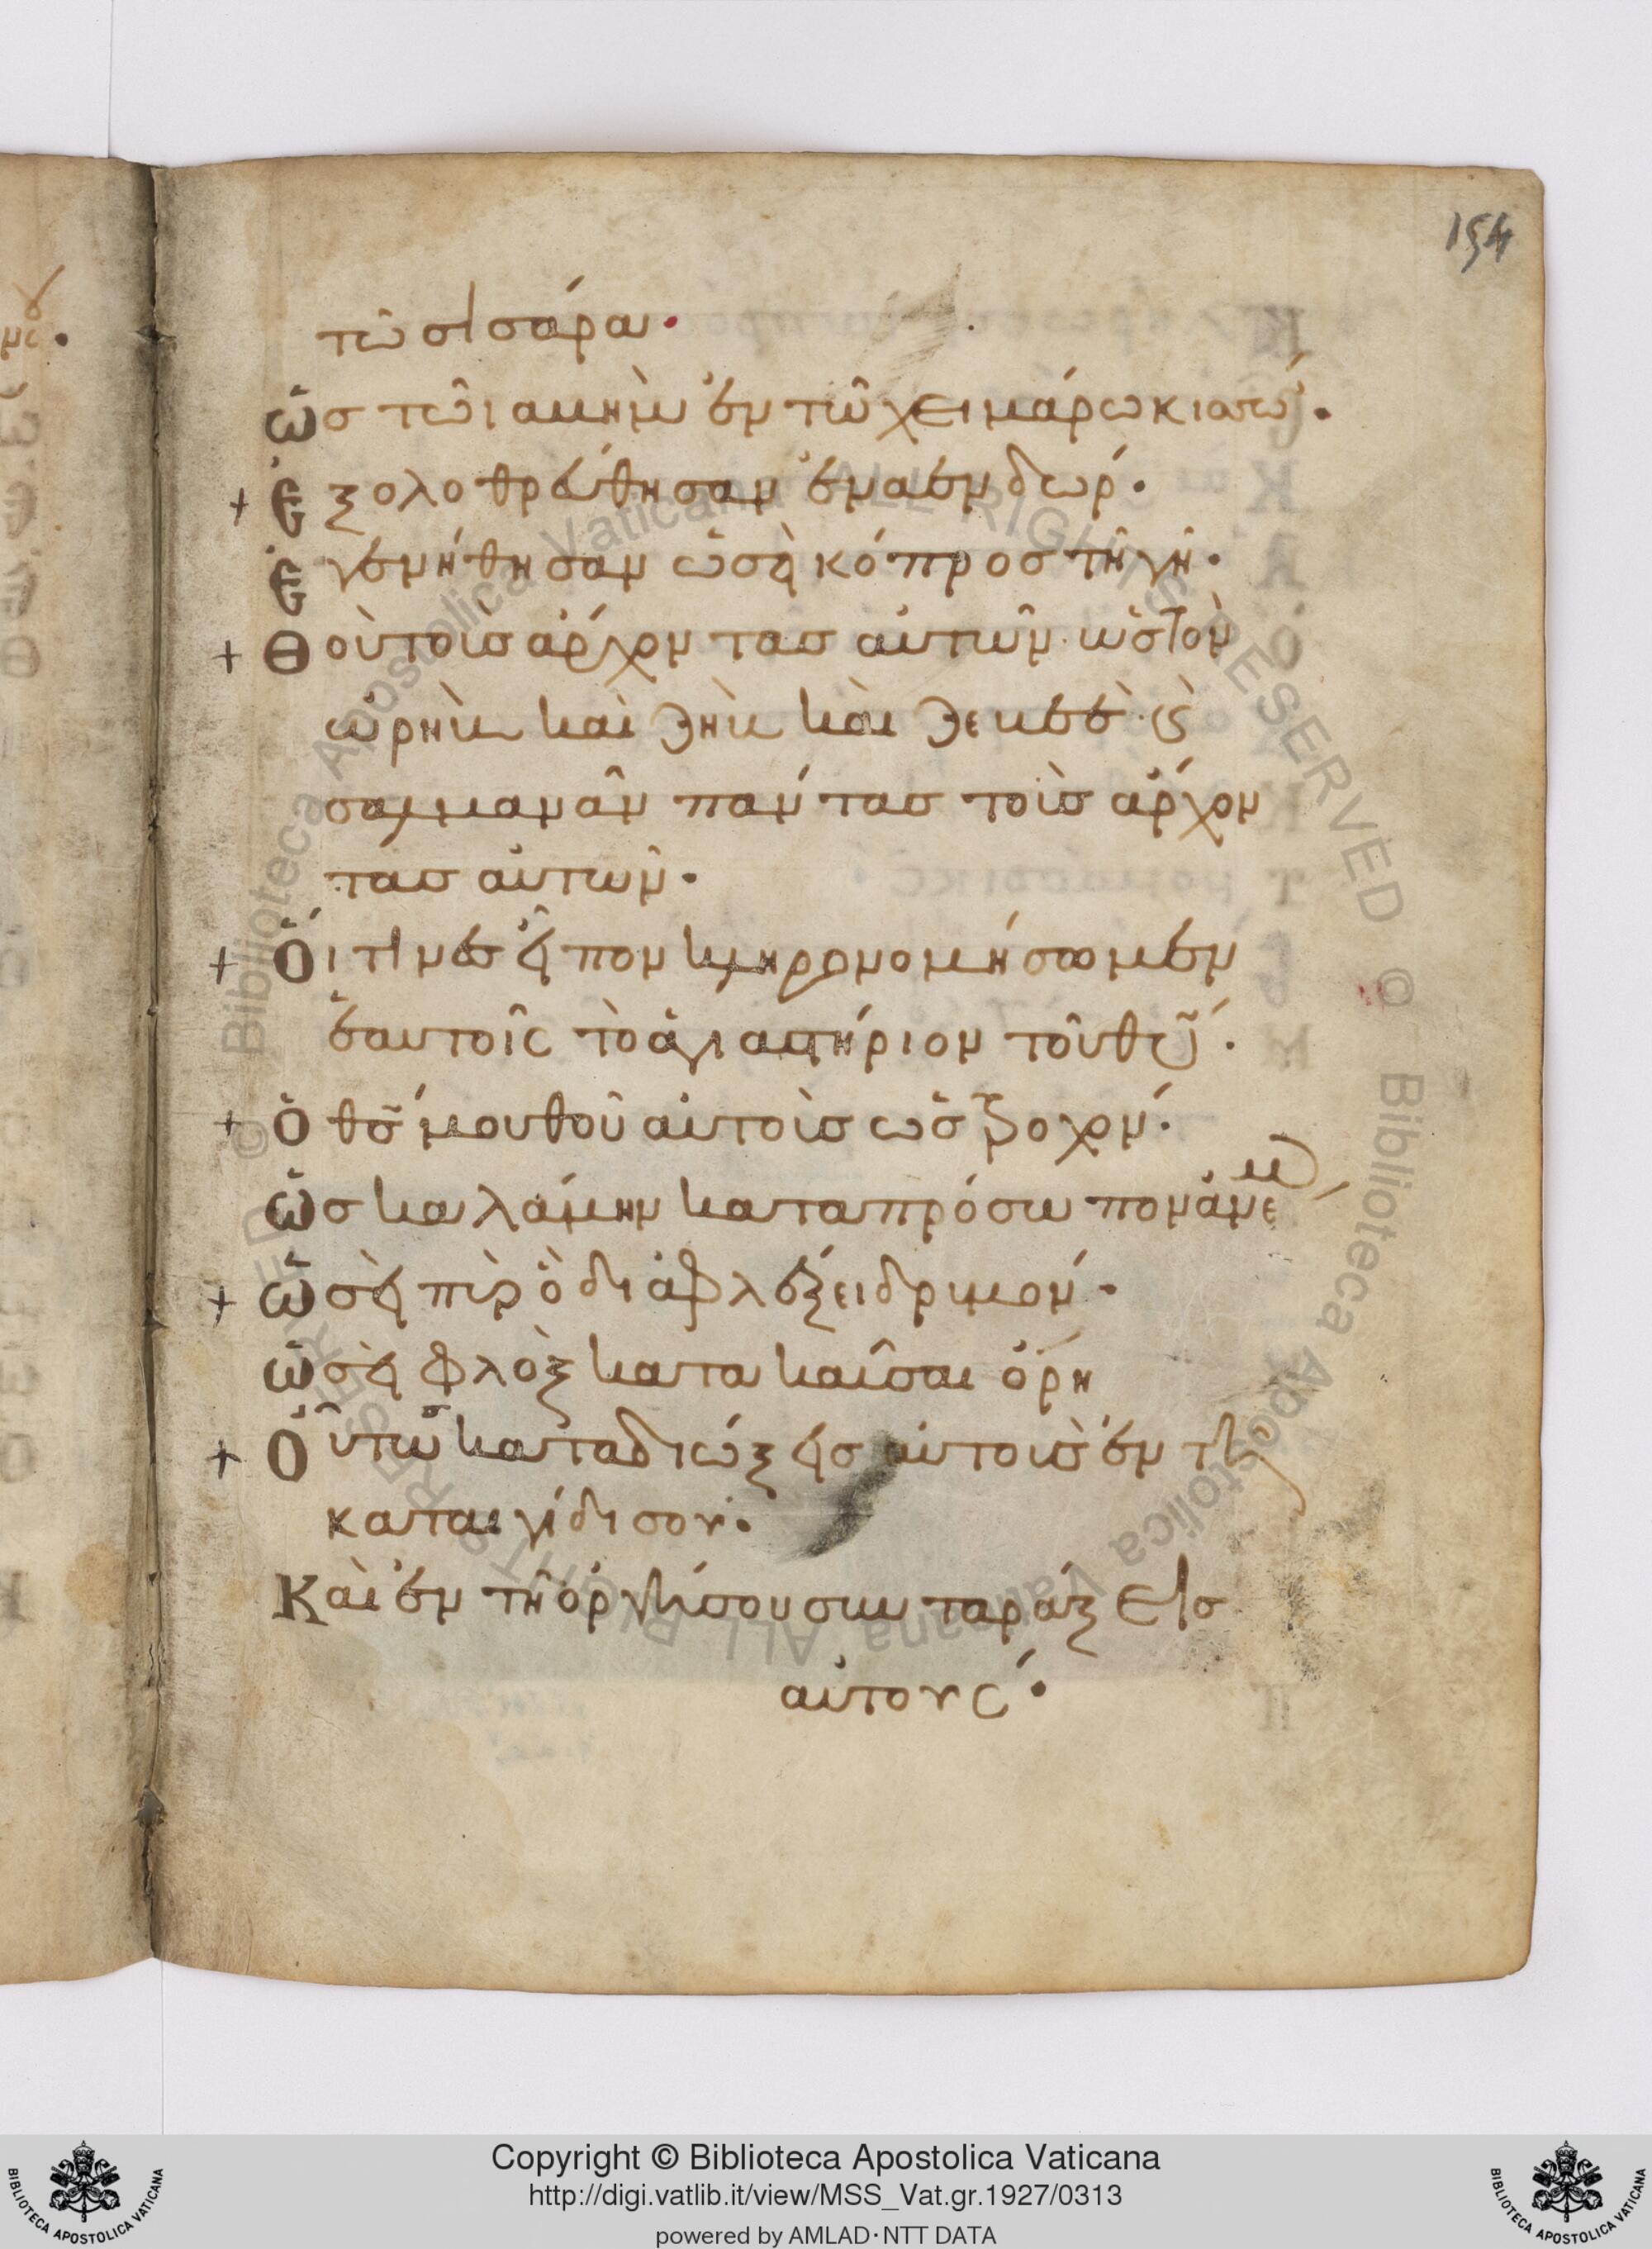 154
τῶ σισάρα·
ὡσ τῶ ιαμὴμ ἐν τῶ χειμάρω κισώ·
+ ἐξολοθρεύθησαν ἐν αενδωρ·
ἐγενήθησαν ὡσεὶ κόπροσ τῆ γῆ·
+ Θοὺ τοὺσ ἄρχοντασ αὐτῶν ὡσ τὸν
ὡρὴκ καὶ ζὴκ καὶ ζεκεὲ ϛ̀
σαλμανᾶν πάντασ τοὺσ ἄρχον
τασ αὐτῶν·
+ Ὅιτινεσ εἶπον κληρονομήσωμεν
ἑαυτοῖς τὸ ἁγιαστήριον τοῦ θυ̃·
+ Ὁ θσ̃ μου θοῦ αὐτοὺσ ὡσ τροχόν·
ὡσ καλάμην κατα πρόσωπον ἀνέμου
+ ὡσεὶ πῦρ ὃ διαφλέξει δρυμόν·
ὡσεὶ φλὸξ κατακαῦσαι ὄρη
+ Οὕτωσ καταδιώξεισ αὐτοὺσ ἐν τῆ
καταιγίδι σου·
Καὶ ἐν τῆ ὀργῆ σου συνταράξεισ
αὐτούς·
Copyright © Biblioteca Apostolica Vaticana
http://digi.vatlib.it/view/MSS_Vat.gr.1927/0313
powered by AMLAD·NTT DATA
BIBLIOTECA APOSTOLICA VATICANA
BIBLIOTECA APOSTOLICA VATICANA
© Biblioteca Apostolica Vaticana ALL RIGHTS RESERVED
© Biblioteca Apostolica Vaticana ALL RIGHTS RESERVED